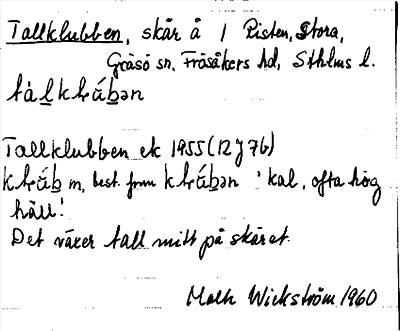 Tallklubben, skär å 1 Pisten, Stora,
Gräsö sn, Frösåkers hd, Sthlms l.
Tallklubben ek 1955 (12 J 7b)
m, best. form 'kal, ofta hög
häll!
Det växer tall mitt på skäret.
Wickström 1960